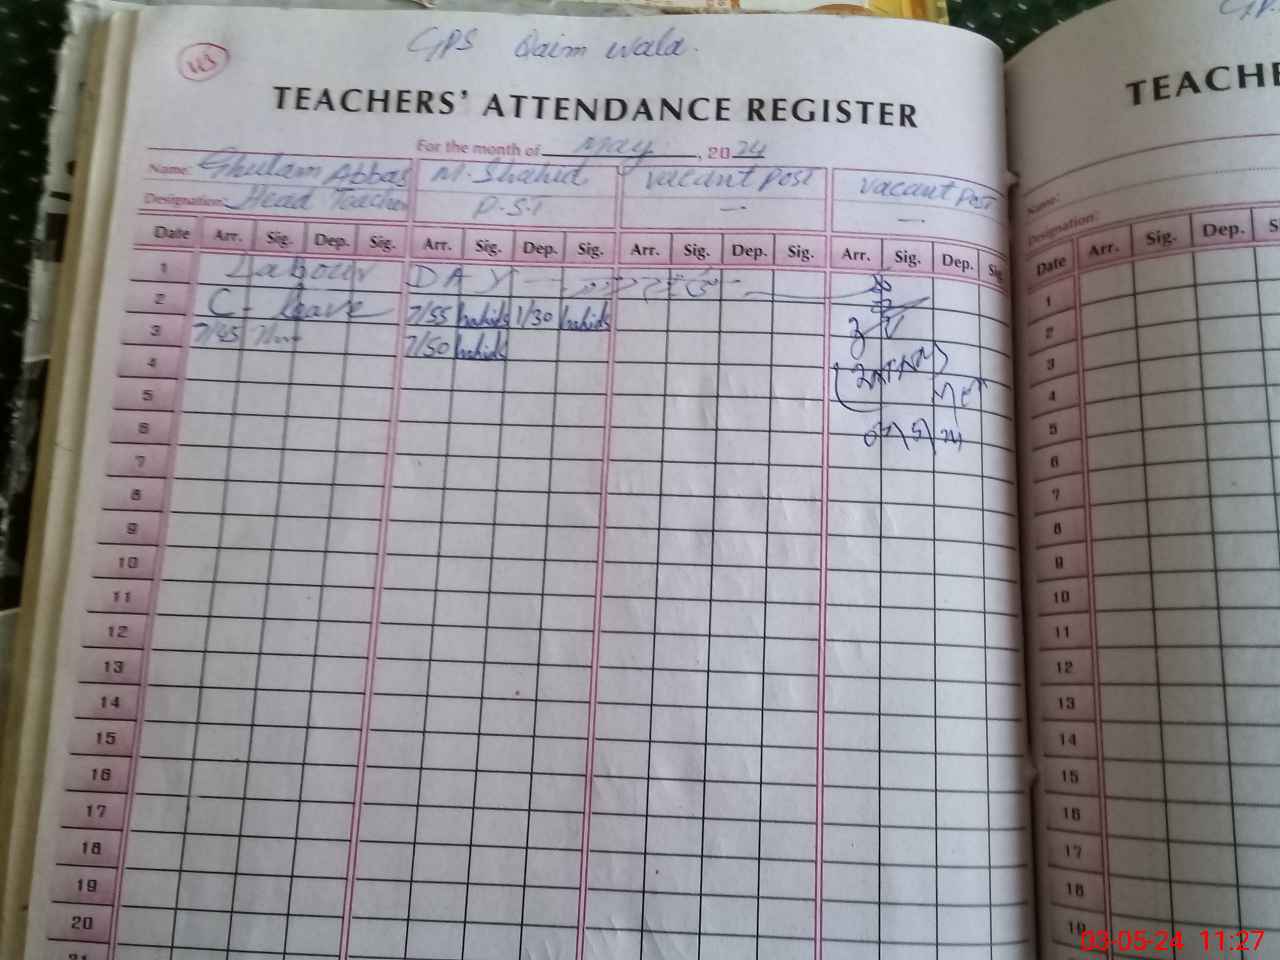 GPS Qaim wala.
TEACHERS' ATTENDANCE REGISTER
For the month of May, 2024
Name: Ghulam Abbas M. Shahid vacant post vacant post
Designation: Head Teacher P.S.T - -
Date Arr. Sig. Dep. Sig. Arr. Sig. Dep. Sig. Arr. Sig. Dep. Sig. Arr. Sig. Dep. Sig
1 Labour DAY
2 C- leave 7/55 hahids 1/30 hahids
3 7/45 7/50 hahids
4
5
6
7
8
9
10
11
12
13
14
15
16
17
18
19
20
21
GP
TEACHE
Name:
Designation:
Date Arr. Sig. Dep. S
1
2
3
4
5
6
7
8
9
10
11
12
13
14
15
16
17
18
19
03-05-24 11:27